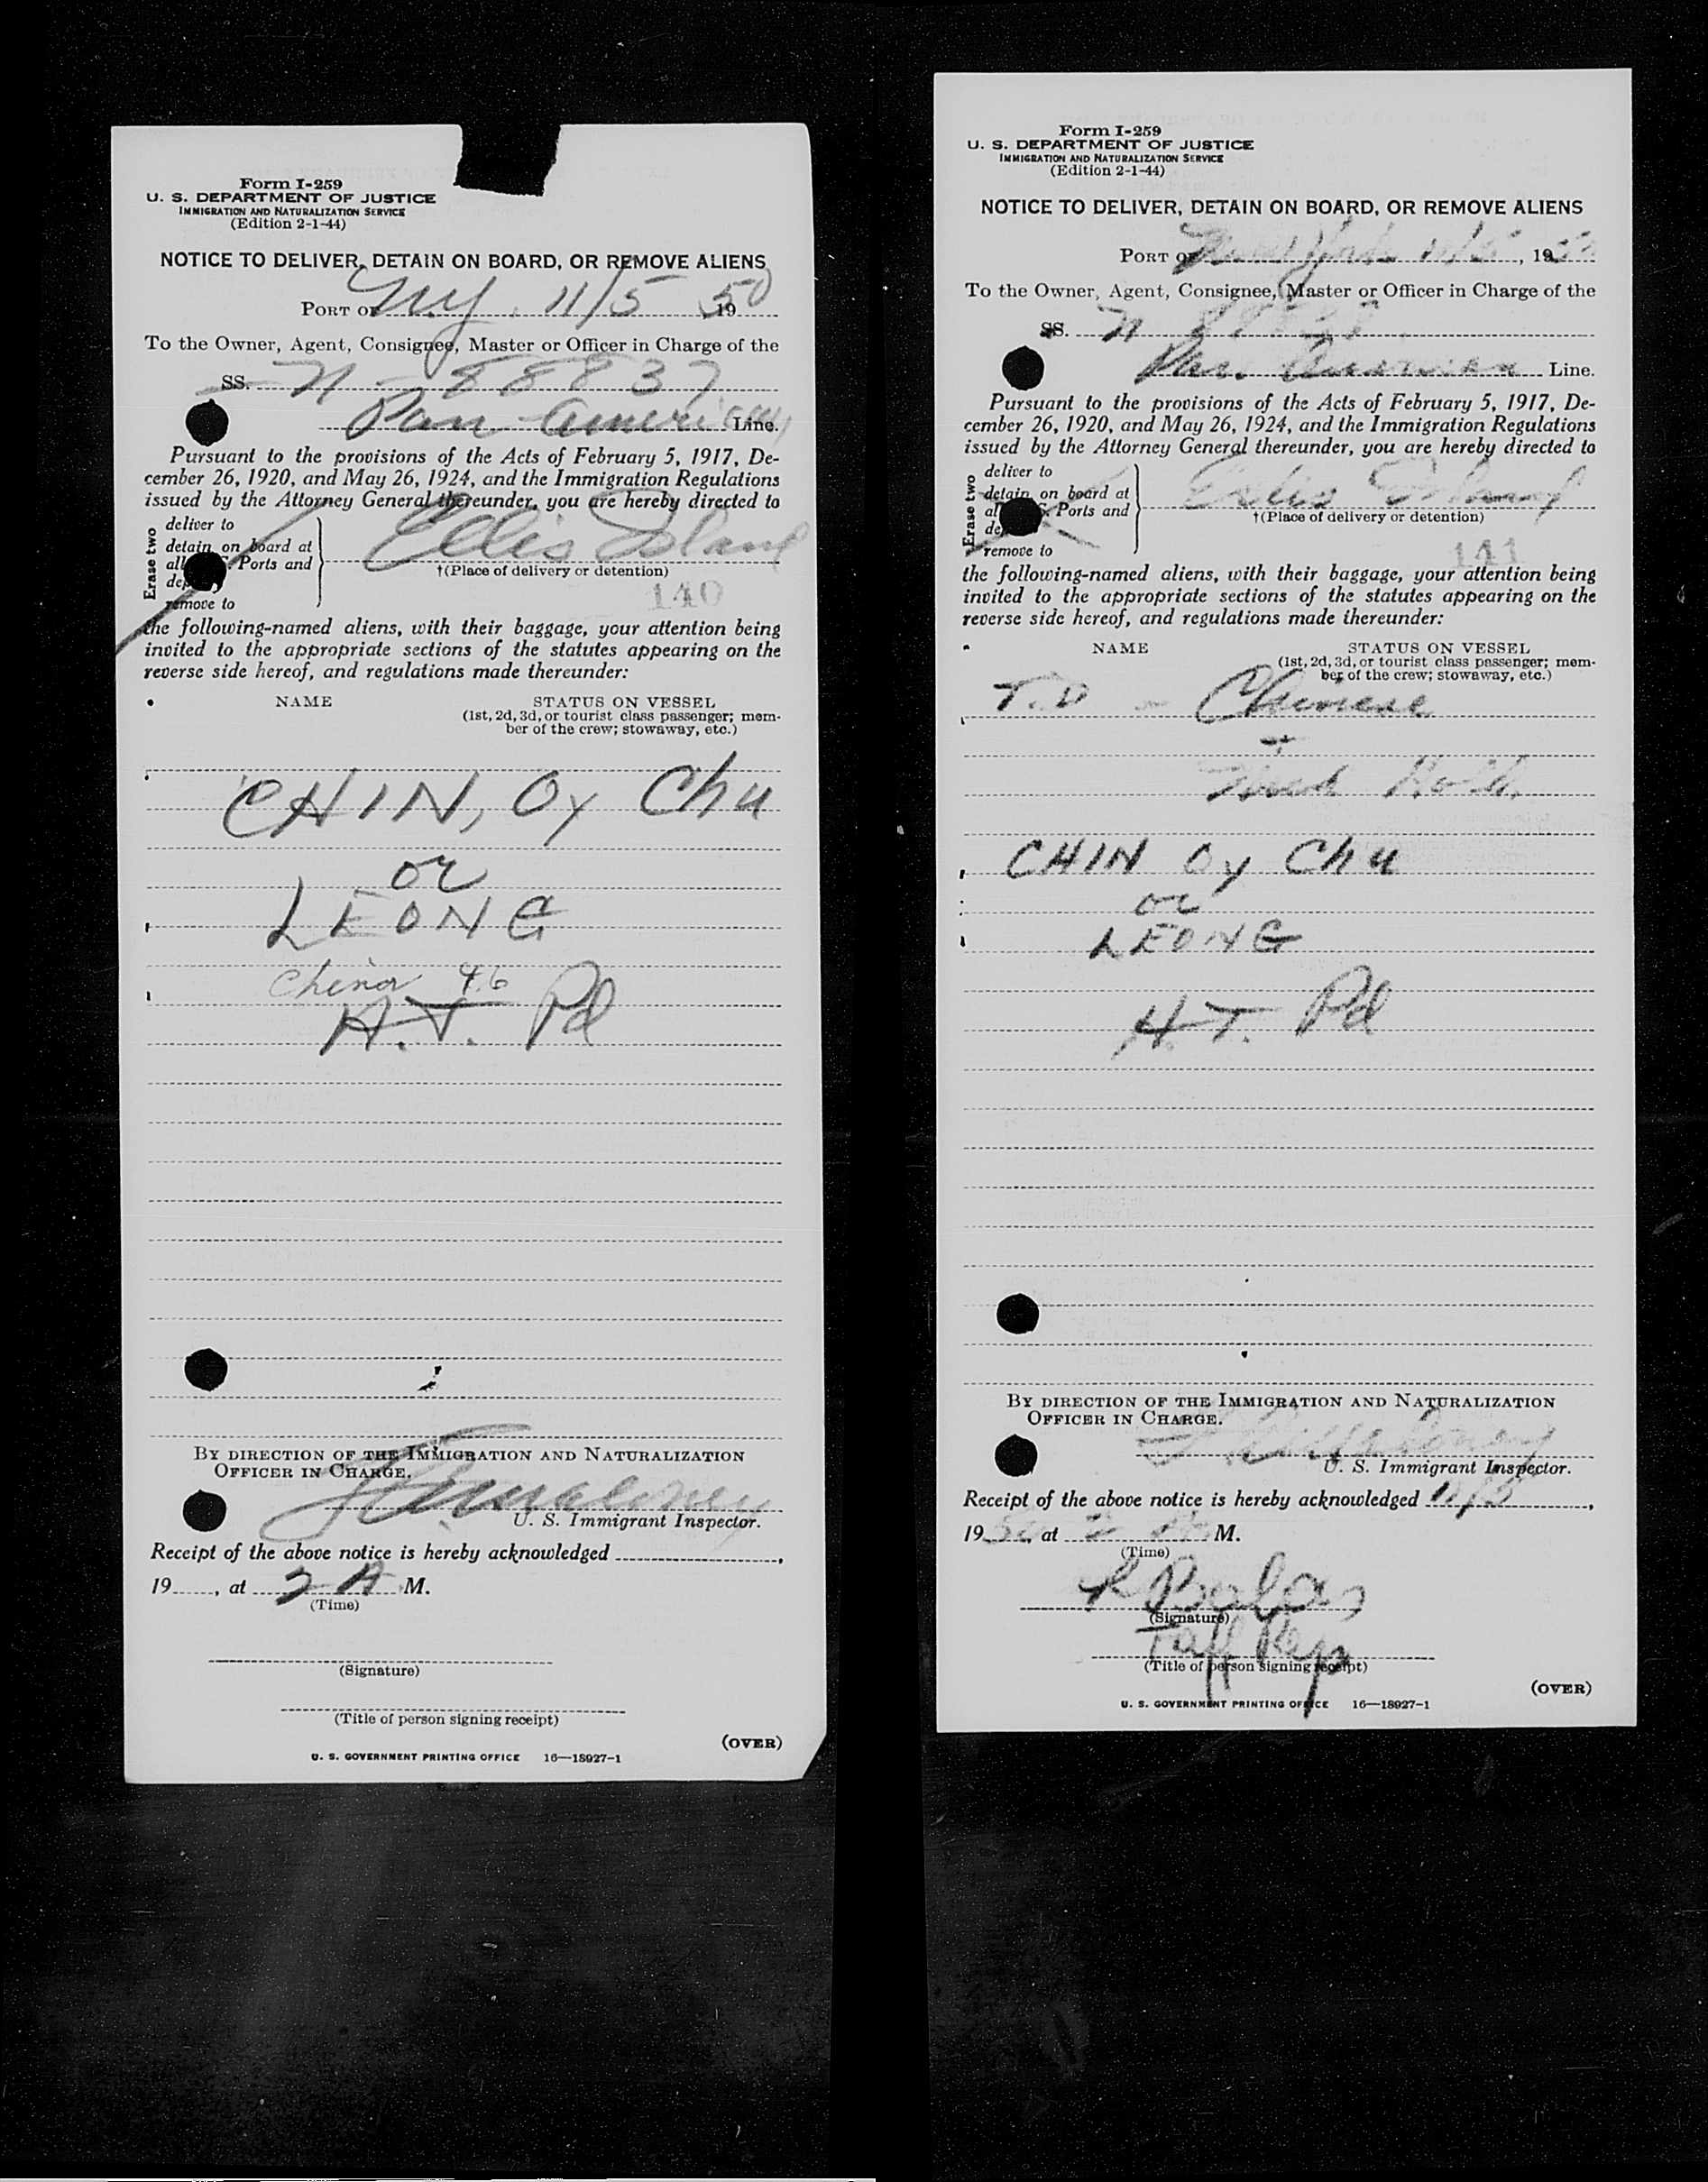 Form I-259
U. S. DEPARTMENT OF JUSTICE
IMMIGRATION AND NATURALIZATION SERVICE
(Edition 2-1-44)
NOTICE TO DELIVER, DETAIN ON BOARD, OR REMOVE ALIENS
PORT OF N.Y. 11/5, 1950
To the Owner, Agent, Consignee, Master or Officer in Charge of the
SS. N-88837
Pan American Line.
Pursuant to the provisions of the Acts of February 5, 1917, De-
cember 26, 1920, and May 26, 1924, and the Immigration Regulations
issued by the Attorney General thereunder, you are hereby directed to
Erase two
deliver to
detain on board at
all Ports and
remove to
Ellis Island
†(Place of delivery or detention)
140
the following-named aliens, with their baggage, your attention being
invited to the appropriate sections of the statutes appearing on the
reverse side hereof, and regulations made thereunder:
NAME STATUS ON VESSEL
(1st, 2d, 3d, or tourist class passenger; mem-
ber of the crew; stowaway, etc.)
CHIN, Oy Chu
or
LEONG
China 46
H.T. Pd
BY DIRECTION OF THE IMMIGRATION AND NATURALIZATION
OFFICER IN CHARGE.
U. S. Immigrant Inspector.
Receipt of the above notice is hereby acknowledged
19, at 2 A M.
(Time)
(Signature)
(Title of person signing receipt)
(OVER)
U. S. GOVERNMENT PRINTING OFFICE 16—18927-1
Form I-259
U. S. DEPARTMENT OF JUSTICE
IMMIGRATION AND NATURALIZATION SERVICE
(Edition 2-1-44)
NOTICE TO DELIVER, DETAIN ON BOARD, OR REMOVE ALIENS
PORT OF New York 11/5, 1950
To the Owner, Agent, Consignee, Master or Officer in Charge of the
SS. N 88837
Pan American Line.
Pursuant to the provisions of the Acts of February 5, 1917, De-
cember 26, 1920, and May 26, 1924, and the Immigration Regulations
issued by the Attorney General thereunder, you are hereby directed to
Erase two
deliver to
detain on board at
Ports and
remove to
Ellis Island
†(Place of delivery or detention)
141
the following-named aliens, with their baggage, your attention being
invited to the appropriate sections of the statutes appearing on the
reverse side hereof, and regulations made thereunder:
NAME STATUS ON VESSEL
(1st, 2d, 3d, or tourist class passenger; mem-
ber of the crew; stowaway, etc.)
T.D - Chinese
+
CHIN Oy Chu
or
LEONG
H.T. Pd
BY DIRECTION OF THE IMMIGRATION AND NATURALIZATION
OFFICER IN CHARGE.
U. S. Immigrant Inspector.
Receipt of the above notice is hereby acknowledged 11/5,
1950, at 2 A M.
(Time)
(Signature)
(Title of person signing receipt)
(OVER)
U. S. GOVERNMENT PRINTING OFFICE 16—18927-1